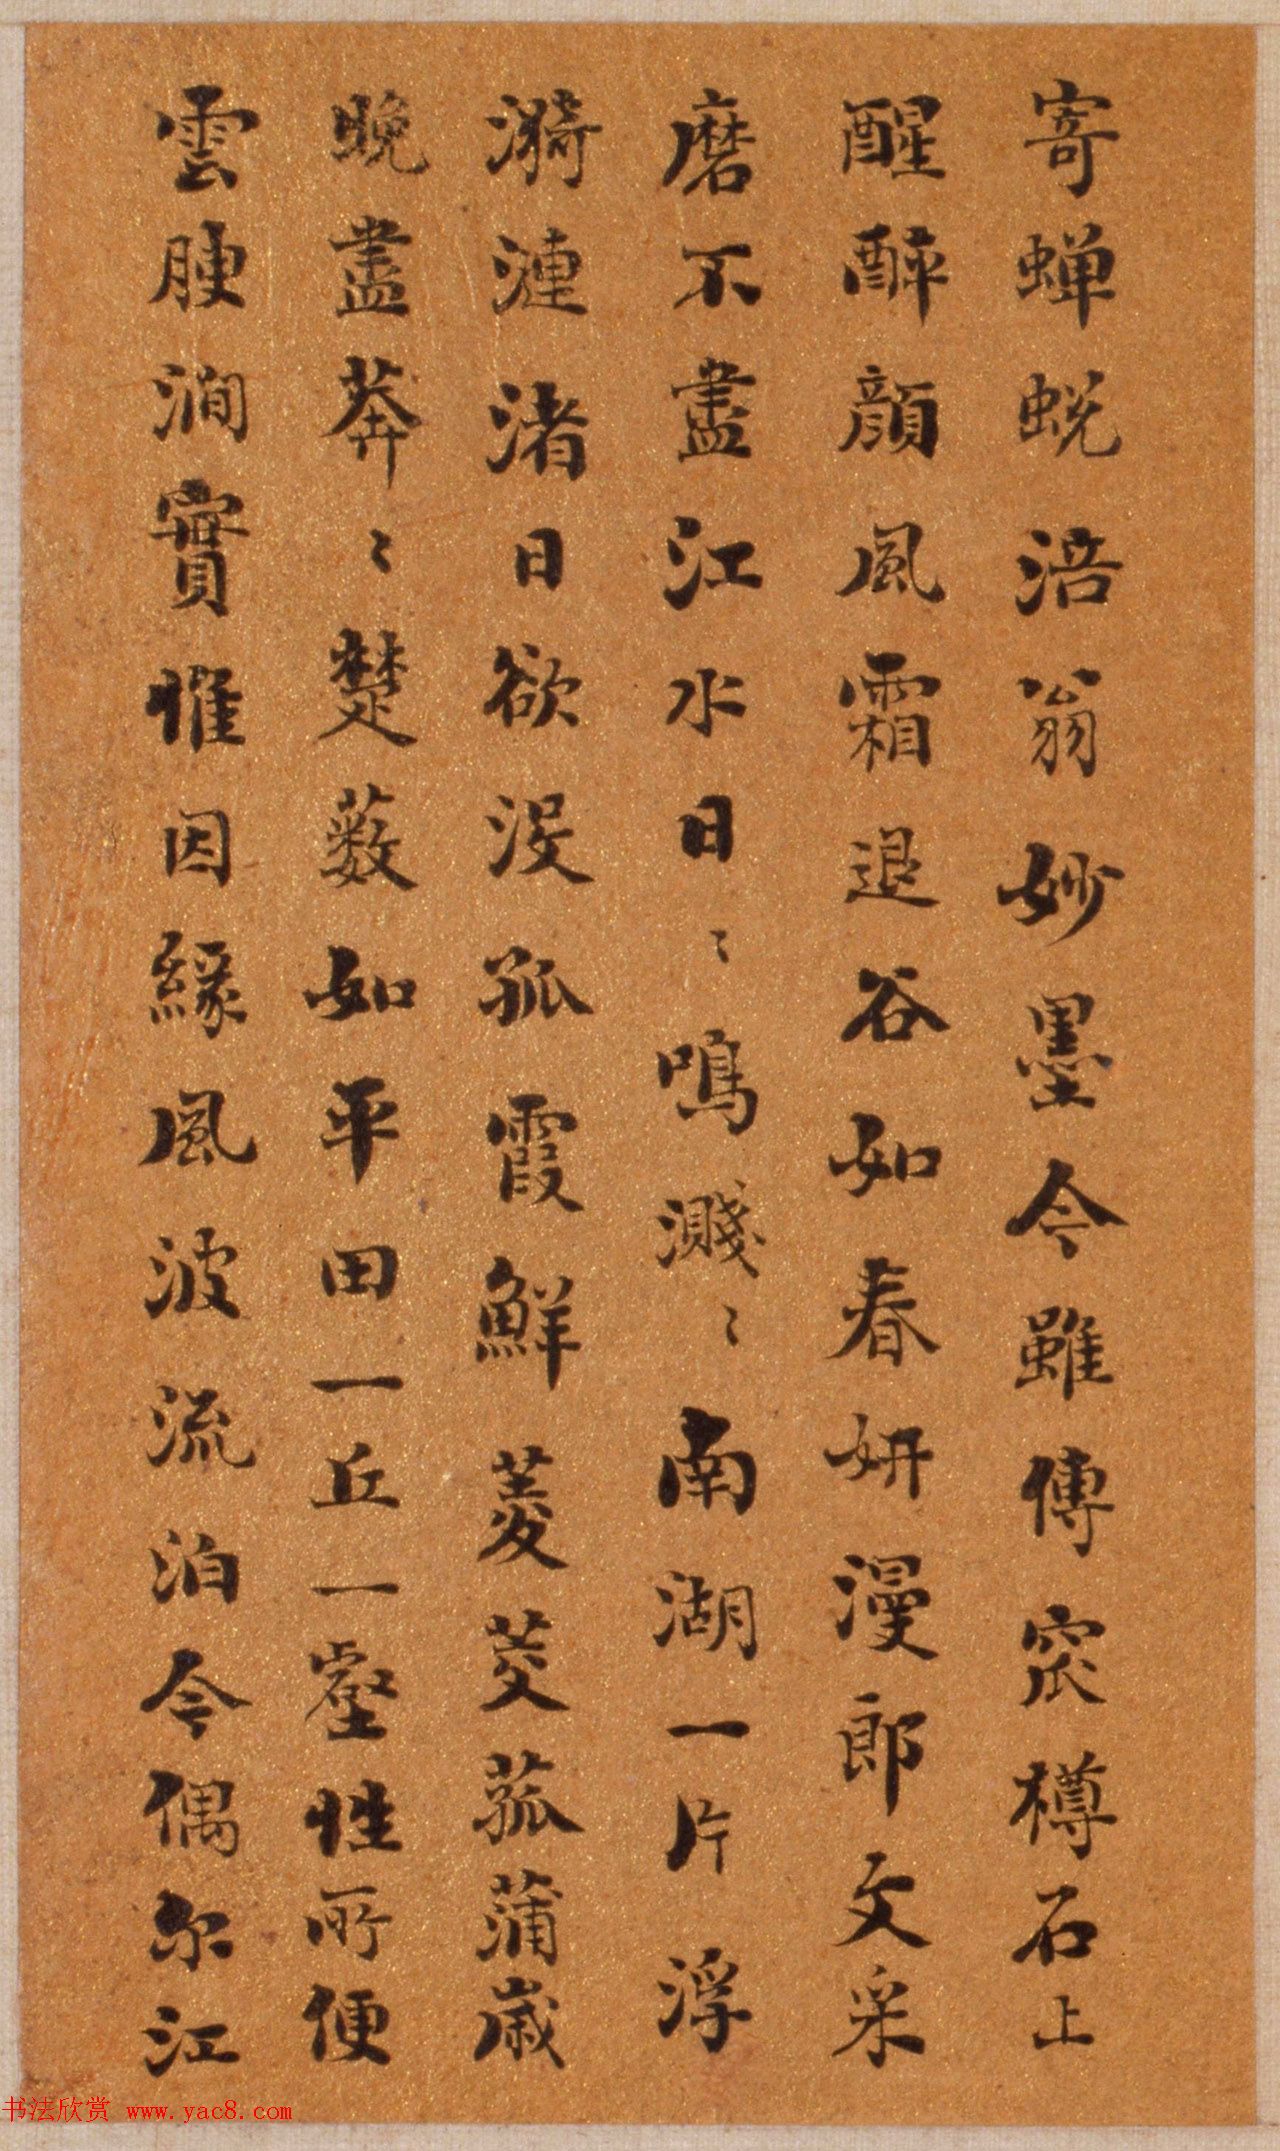 寄蟬蛻涪翁妙墨今雖傳窊樽石上
醒醉顔風霜退谷如春妍漫郎文采
磨不盡江水日〻鳴濺〻南湖一片浮
漪漣渚日欲没孤霞鮮菱芰菰蒲歲
晚盡莽〻楚藪如平田一丘一壑性所便
雲腴澗實惟因緣風波流泊今偶尔江
书法欣赏 www.yac8.com